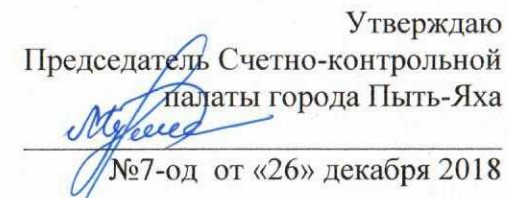 Утверждаю
Председатель Счетно-контрольной
палаты города Пыть-Яха
№7-од от «26» декабря 2018